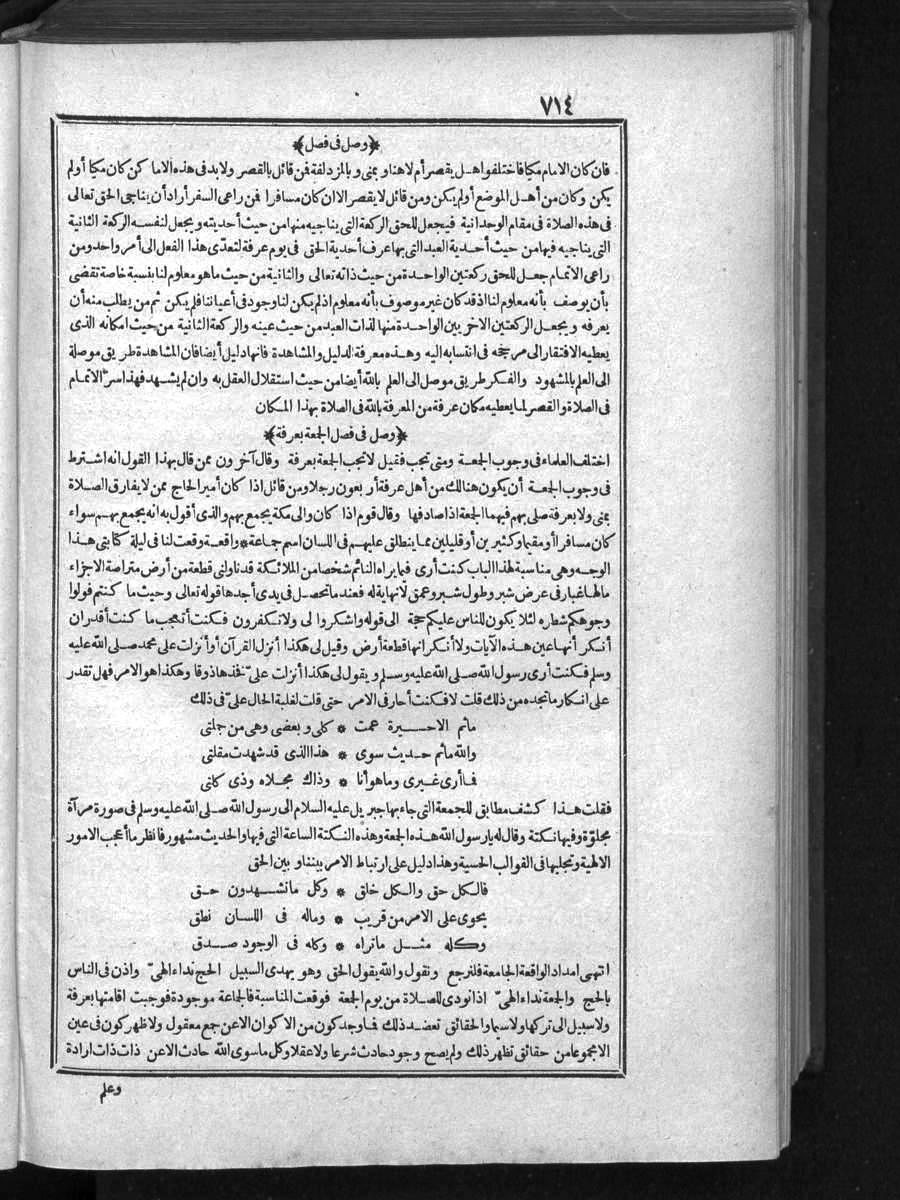 ٧١٤
﴿وصل فى فصل﴾
فان كان الامام مكيا فاختلفوا هل يقصر أم لا هنا وبمنى وبالمزدلفة فمن قائل بالقصر ولا بد فى هذه الاماكن كان مكيا أو لم
يكن وكان من أهل الموضع أو لم يكن ومن قائل لا يقصر الا ان كان مسافرا فمن راعى السفر أراد أن يناجى الحق تعالى
فى هذه الصلاة فى مقام الوحدانية فيجعل للحق الركعة التى يناجيه منها من حيث أحديته ويجعل لنفسه الركعة الثانية
التى يناجيه فيها من حيث أحدية العبد التى بها عرف أحدية الحق فى يوم عرفة لتعدّى هذا الفعل الى أمر واحد ومن
راعى الاتمام جعل للحق ركعتين الواحدة من حيث ذاته تعالى والثانية من حيث ما هو معلوم لنا بنسبة خاصة تقضى
بأن يوصف بأنه معلوم لنا اذ قد كان غير موصوف بأنه معلوم اذ لم يكن لنا وجود فى أعياننا فلم يكن ثم من يطلب منه أن
يعرفه ويجعل الركعتين الاخر بين الواحدة منها لذات العبد من حيث عينه والركعة الثانية من حيث امكانه الذى
يعطيه الافتقار الى مرجحه فى انتسابه اليه وهذه معرفة الدليل والمشاهدة فانها دليل أيضا فان المشاهدة طريق موصلة
الى العلم بالمشهود والفكر طريق موصل الى العلم بالله أيضا من حيث استقلال العقل به وان لم يشهد فهذا سرّ الاتمام
فى الصلاة والقصر لما يعطيه مكان عرفة من المعرفة بالله فى الصلاة بهذا المكان
﴿وصل فى فصل الجمعة بعرفة﴾
اختلف العلماء فى وجوب الجمعة ومتى تجب فقيل لا تجب الجمعة بعرفة وقال آخرون ممن قال بهذا القول انه اشترط
فى وجوب الجمعة أن يكون هنالك من أهل عرفة أربعون رجلا ومن قائل اذا كان أمير الحاج ممن لا يفارق الصلاة
بمنى ولا بعرفة صلى بهم فيهما الجمعة اذا صادفها وقال قوم اذا كان والى مكة يجمع بهم والذى أقول به انه يجمع بهم سواء
كان مسافرا أو مقيما وكثيرين أو قليلين مما ينطلق عليهم فى اللسان اسم جماعة * واقعة وقعت لنا فى ليلة كتابتى هذا
الوجه وهى مناسبة لهذا الباب كنت أرى فيما يراه النائم شخصا من الملائكة قد ناولنى قطعة من أرض متراصة الاجزاء
مالها غبار فى عرض شبر وطول شبر وعمق لا نهاية له فعند ما تحصل فى يدى أجدها قوله تعالى وحيث ما كنتم فولوا
وجوهكم شطره لئلا يكون للناس عليكم حجة الى قوله واشكروا لى ولا تكفرون فكنت أتعجب ما كنت أقدر ان
أنكر أنها عين هذه الآيات ولا أنكر انها قطعة أرض وقيل لى هكذا أنزل القرآن أو أنزلت على محمد صلى الله عليه
وسلم فكنت أرى رسول الله صلى الله عليه وسلم ويقول لى هكذا أنزلت علىّ فخذها ذوقا وهكذا هو الامر فهل تقدر
على انكار ما تجده من ذلك قلت لا فكنت أحار فى الامر حتى قلت لغلبة الحال علىّ فى ذلك
ماثم الا حـيرة عمت * كلى وبعضى وهى من جلتى
والله ماثم حديث سوى * هذا الذى قد شهدت مقلتى
فما أرى غيرى وما هو أنا * وذاك مجلاه وذى كلتى
فقلت هذا كشف مطابق للجمعة التى جاء بها جبريل عليه السلام الى رسول الله صلى الله عليه وسلم فى صورة مرآة
مجلوّة وفيها نكتة وقال له يا رسول الله هذه الجمعة وهذه النكتة الساعة التى فيها والحديث مشهور فانظر ما أعجب الامور
الالهية وتجليها فى القوالب الحسية وهذا دليل على ارتباط الامر بيننا وبين الحق
فالكل حق والكل خلق * وكل ما تشهدون حق
يحوى على الامر من قريب * وماله فى اللسان نطق
وكله مثل ماتراه * وكله فى الوجود صدق
انتهى امداد الواقعة الجامعة فلنرجع ونقول والله يقول الحق وهو يهدى السبيل الحج نداء الهىّ واذن فى الناس
بالحج والجمعة نداء الهىّ اذا نودى للصلاة من يوم الجمعة فوقعت المناسبة فالجماعة موجودة فوجبت اقامتها بعرفة
ولا سبيل الى تركها ولا سيما والحقائق تعضد ذلك فما وجد كون من الاكوان الا عن جمع معقول ولا ظهر كون فى عين
الا مجموعا من حقائق تظهر ذلك ولم يصح وجود حادث شرعا ولا عقلا وكل ما سوى الله حادث الا عن ذات ذات ارادة
وعلم